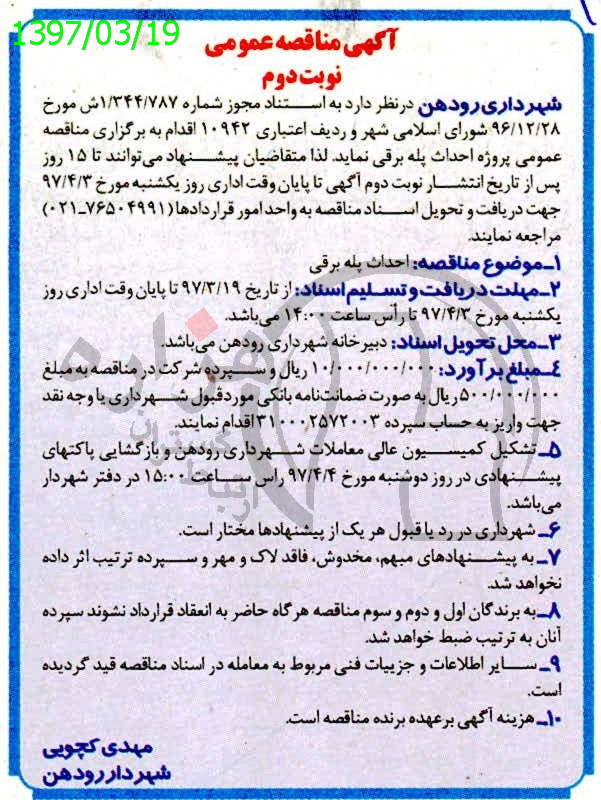 1397/03/19
آگهی مناقصه عمومی
نوبت دوم
شهرداری رودهن درنظر دارد به استناد مجوز شماره ۱/۳۴۴/۷۸۷ش مورخ
۹۶/۱۲/۲۸ شورای اسلامی شهر و ردیف اعتباری ۱۰۹۴۲ اقدام به برگزاری مناقصه
عمومی پروژه احداث پله برقی نماید. لذا متقاضیان پیشنهاد می‌توانند تا ۱۵ روز
پس از تاریخ انتشار نوبت دوم آگهی تا پایان وقت اداری روز یکشنبه مورخ ۹۷/۴/۳
جهت دریافت و تحویل اسناد مناقصه به واحد امور قراردادها (۷۶۵۰۴۹۹۱-۰۲۱)
مراجعه نمایند.
۱ـ موضوع مناقصه: احداث پله برقی
۲ـ مهلت دریافت و تسلیم اسناد: از تاریخ ۹۷/۳/۱۹ تا پایان وقت اداری روز
یکشنبه مورخ ۹۷/۴/۳ تا رأس ساعت ۱۴:۰۰ می‌باشد.
۳ـ محل تحویل اسناد: دبیرخانه شهرداری رودهن می‌باشد.
۴ـ مبلغ برآورد: ۱۰/۰۰۰/۰۰۰/۰۰۰ ریال و سپرده شرکت در مناقصه به مبلغ
۵۰۰/۰۰۰/۰۰۰ ریال به صورت ضمانت‌نامه بانکی موردقبول شهرداری یا وجه نقد
جهت واریز به حساب سپرده ۳۱۰۰۰۲۵۷۲۰۰۳ اقدام نمایند.
۵ـ تشکیل کمیسیون عالی معاملات شهرداری رودهن و بازگشایی پاکتهای
پیشنهادی در روز دوشنبه مورخ ۹۷/۴/۴ راس ساعت ۱۵:۰۰ در دفتر شهردار
می‌باشد.
۶ـ شهرداری در رد یا قبول هر یک از پیشنهادها مختار است.
۷ـ به پیشنهادهای مبهم، مخدوش، فاقد لاک و مهر و سپرده ترتیب اثر داده
نخواهد شد.
۸ـ به برندگان اول و دوم و سوم مناقصه هرگاه حاضر به انعقاد قرارداد نشوند سپرده
آنان به ترتیب ضبط خواهد شد.
۹ـ سایر اطلاعات و جزییات فنی مربوط به معامله در اسناد مناقصه قید گردیده
است.
۱۰ـ هزینه آگهی برعهده برنده مناقصه است.
مهدی کچویی
شهردار رودهن